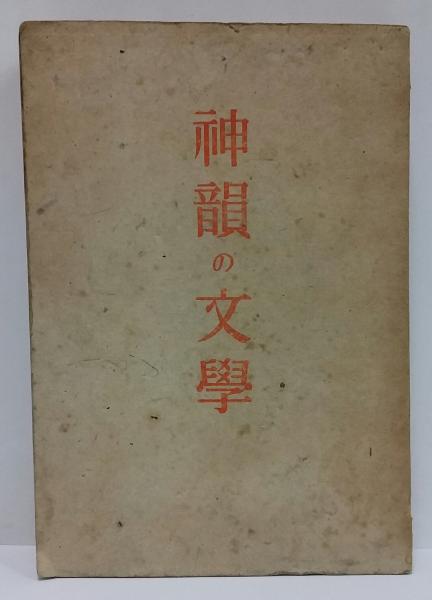 神韻の文學